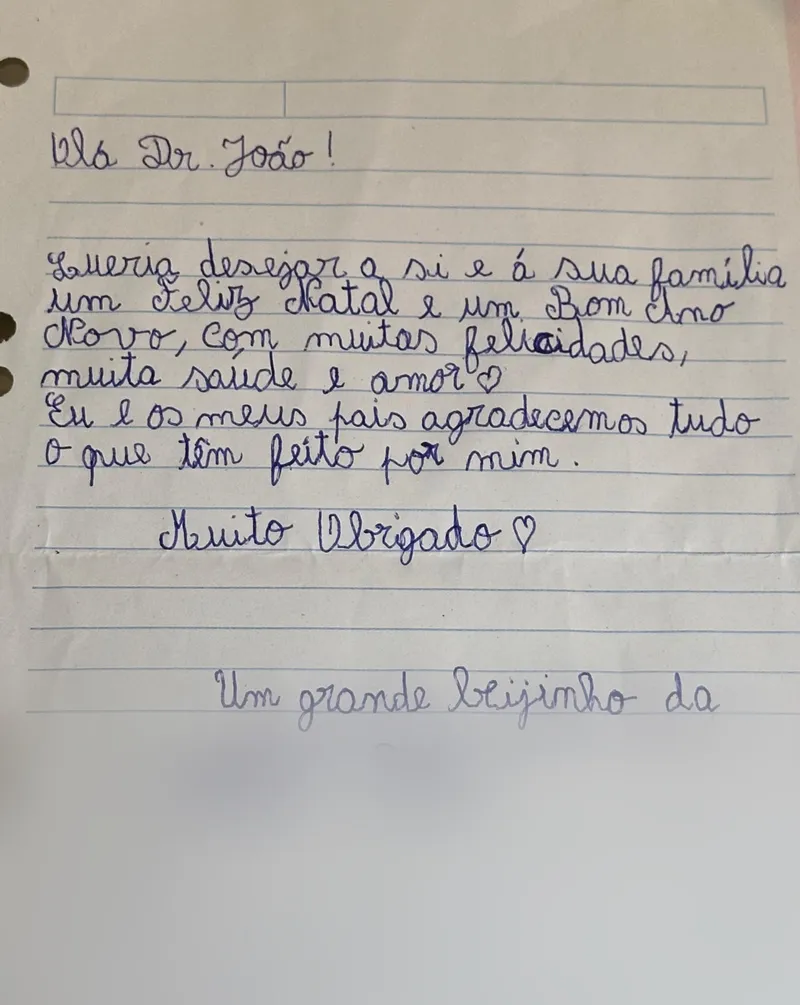 Olá Dr. João!
Queria desejar a si e á sua família
um Feliz Natal e um Bom Ano
Novo, Com muitas felicidades,
muita saúde e amor ♡
Eu e os meus pais agradecemos tudo
o que têm feito por mim.
Muito Obrigado ♡
Um grande beijinho da